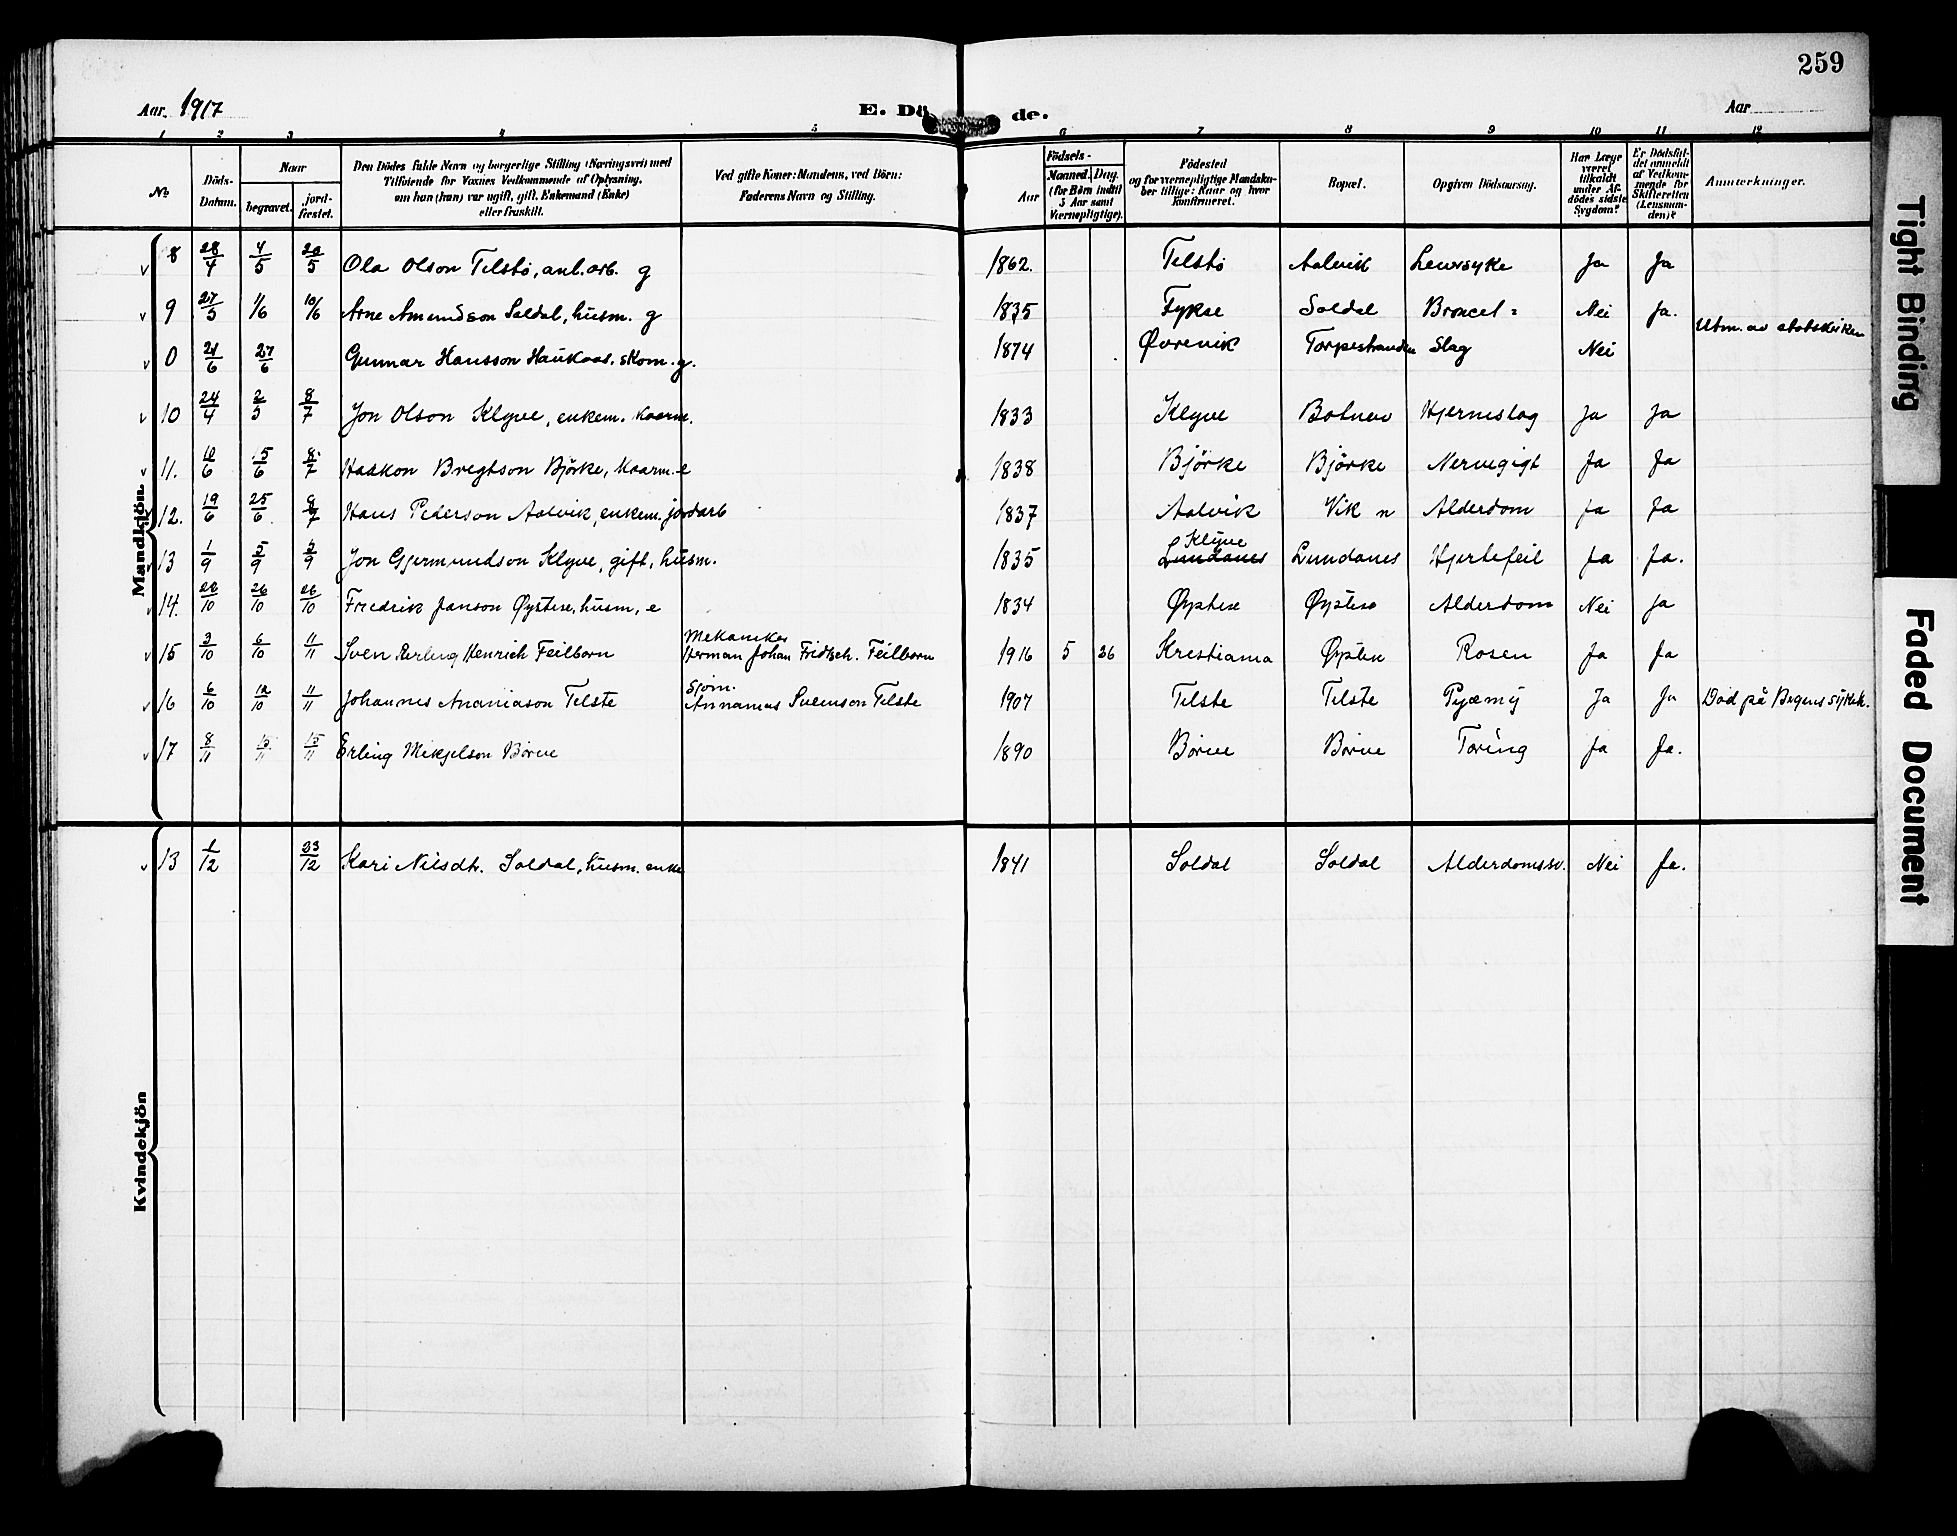 259
Aar. 1917 E. Dö de. Aar
1 2 3 4 5 6 7 8 9 10 11 12
No Döds-Datum. Naar begravet. jord-fæstet. Den Dödes fulde Navn og borgerlige Stilling (Næringsvei) med Tilföiende for Voxnes Vedkommende af Oplysning, om hun (han) var ugift, gift, Enkemand (Enke) eller fraskilt. Ved gifte Koner: Mandens, ved Börn: Faderens Navn og Stilling. Födsels- Aar Maaned. Dag. (for Børn indtil 5 Aar samt Værnepligtige). Födested og for værnepligtige Mandskaber tillige: Naar og hvor konfirmeret. Bopæl. Opgiven Dödsaarsag. Har Læge været tilkaldt under Afdödes sidste Sygdom? Er Dödsfaldet anmeldt af Vedkommende for Skifteretten (Lensmanden)? Anmærkninger.
Mandkjön.
v 8 28/4 4/5 20/5 Ola Olson Telstö, anl.arb. g 1862. Telstö Aalvik Leversyke Ja Ja
v 9 27/5 1/6 10/6 Arne Amundson Soldal, husm. g 1835 Fykse Soldal Broncet= Nei Ja.
v 0 21/6 27/6 Gunnar Hansson Haukaas. skom. g. 1874 Øvrevik Torpestranden Slag Nei Utm. av statskirken
v 10 24/4 2/5 8/7 Jon Olson Klyve, enkem. kaarm. 1833 Klyve Botnen Hjerneslag Ja Ja
v 11. 10/6 15/6 8/7 Haakon Bregtson Bjørke, kaarm. e 1838 Bjørke Bjørke Nervegigt Ja Ja
12. 19/6 25/6 8/7 Hans Pederson Aalvik, enkem. jordarb 1837 Aalvik Vik n Alderdom Ja Ja
v 13 1/9 5/9 5/9 Jon Gjermundson Klyve, gift, husm. 1835 Klyve Lundanes Lundanes Hjertefeil Ja Ja.
v 14. 20/10 26/10 26/10 Fredrik Janson Øystese, husm, e 1834 Øystese Øystese Alderdom Nei Ja
v 15 3/10 6/10 11/11 Sven Erling Henrich Feilborn Mekaniker Herman Johan Fridtsch. Feilborn 1916 5 26 Kristiania Øystese Rosen Ja Ja
v 16 6/10 12/10 11/11 Johannes Ananiason Telste Sjøm. Annanias Svenson Telste 1907 Telste Telste Pyæmi Ja Ja Død på Bergens sykeh.
v 17 8/11 15/11 15/11 Erling Mikjelson Børve 1890 Børve Børve Tæring Ja Ja.
Kvindekjön
v 13 1/12 23/12 Kari Nilsdtr. Soldal, husm. enke 1841 Soldal Soldal Alderdomssv. Nei Ja.
Tight Binding
Faded Document